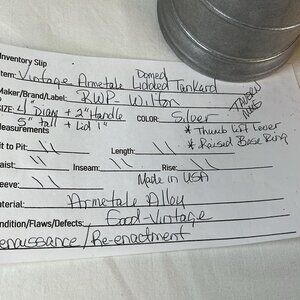 Inventory Slip
Domed
Item: Vintage Armetale Lidded Tankard
Maker/Brand/Label: RWP-Wilton
TAVERN
MUG
SIZE: 4" Diam + 2" Handle COLOR: Silver
5" tall + Lid 1"
* Thumb Lift Lever
Measurements
* Raised Base Ring
Pit to Pit: \\ Length: \\
Waist: \\ Inseam: \\ Rise: \\
Sleeve: \\ Made in USA
Material: Armetale Alloy
Condition/Flaws/Defects: Good-Vintage
Renaissance/Re-enactment